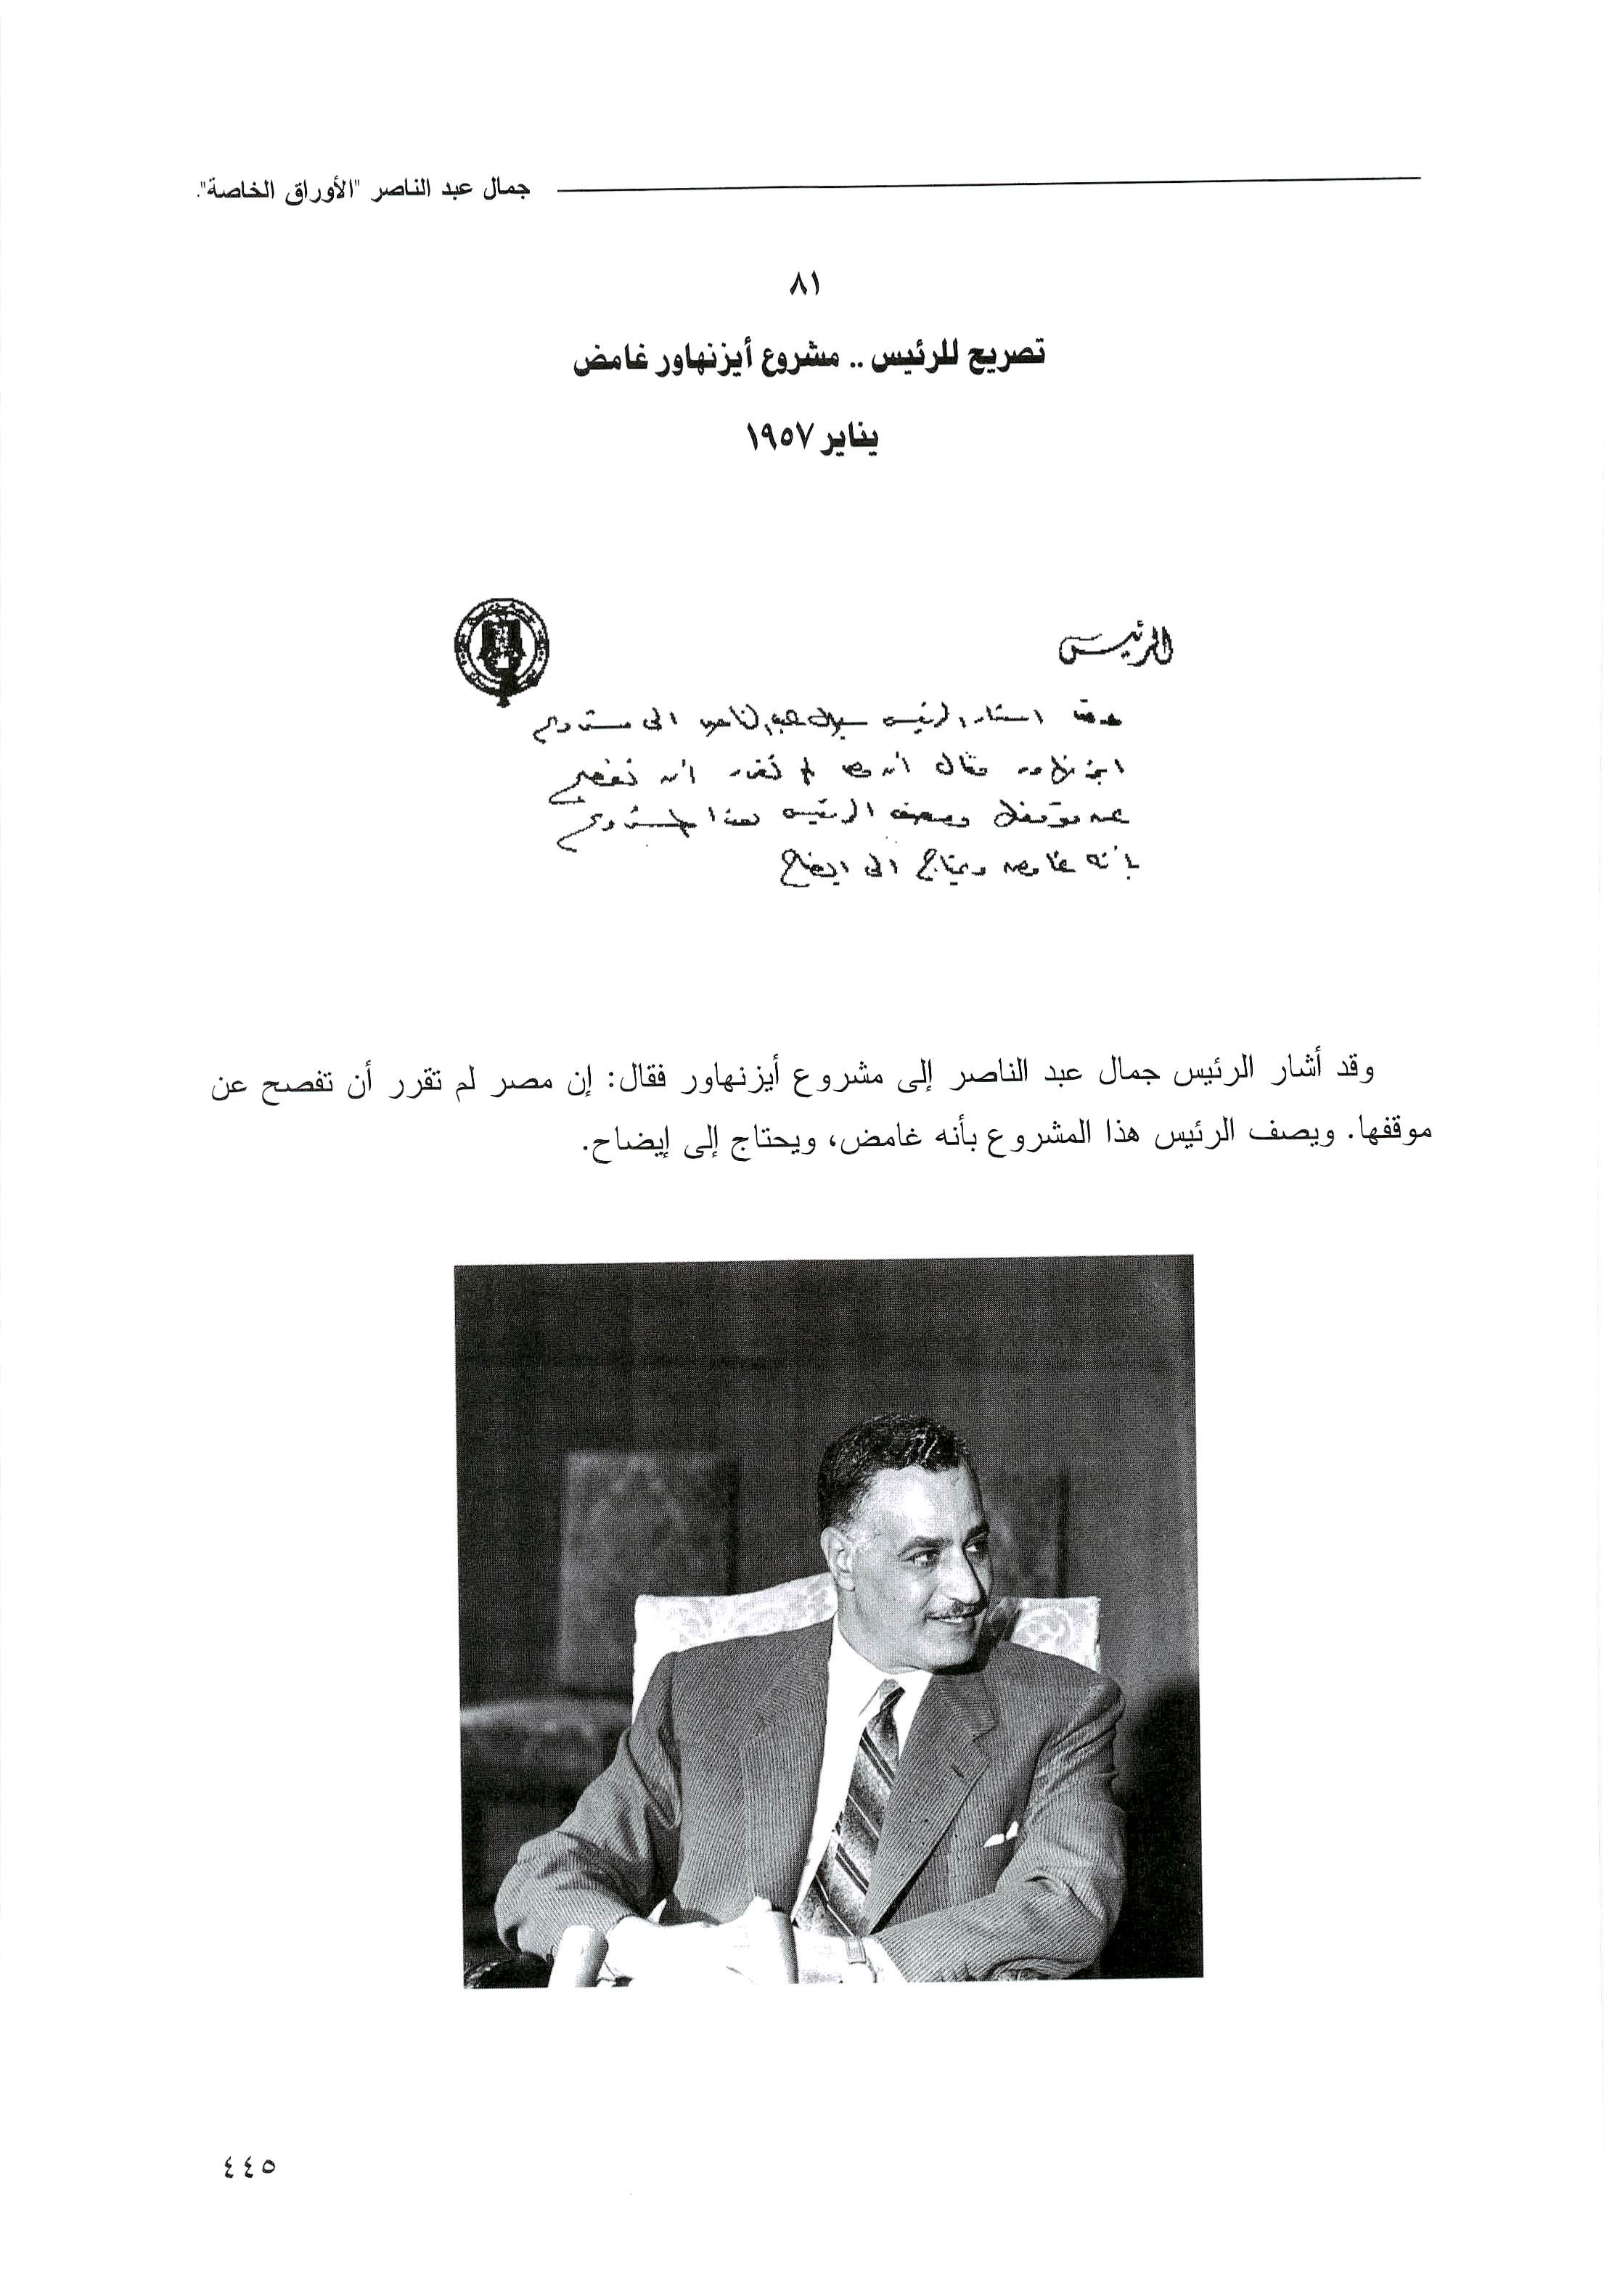 جمال عبد الناصر "الأوراق الخاصة".
٨١
تصريح للرئيس .. مشروع أيزنهاور غامض
يناير ١٩٥٧
الرئيس
وقد اشار الرئيس جمال عبد الناصر الى مشروع
ايزنهاور فقال أن مصر لم تقرر أن تفصح
عن موقفها ويصف الرئيس هذا المشروع
بأنه غامض ويحتاج الى ايضاح
وقد أشار الرئيس جمال عبد الناصر إلى مشروع أيزنهاور فقال: إن مصر لم تقرر أن تفصح عن
موقفها. ويصف الرئيس هذا المشروع بأنه غامض، ويحتاج إلى إيضاح.
٤٤٥